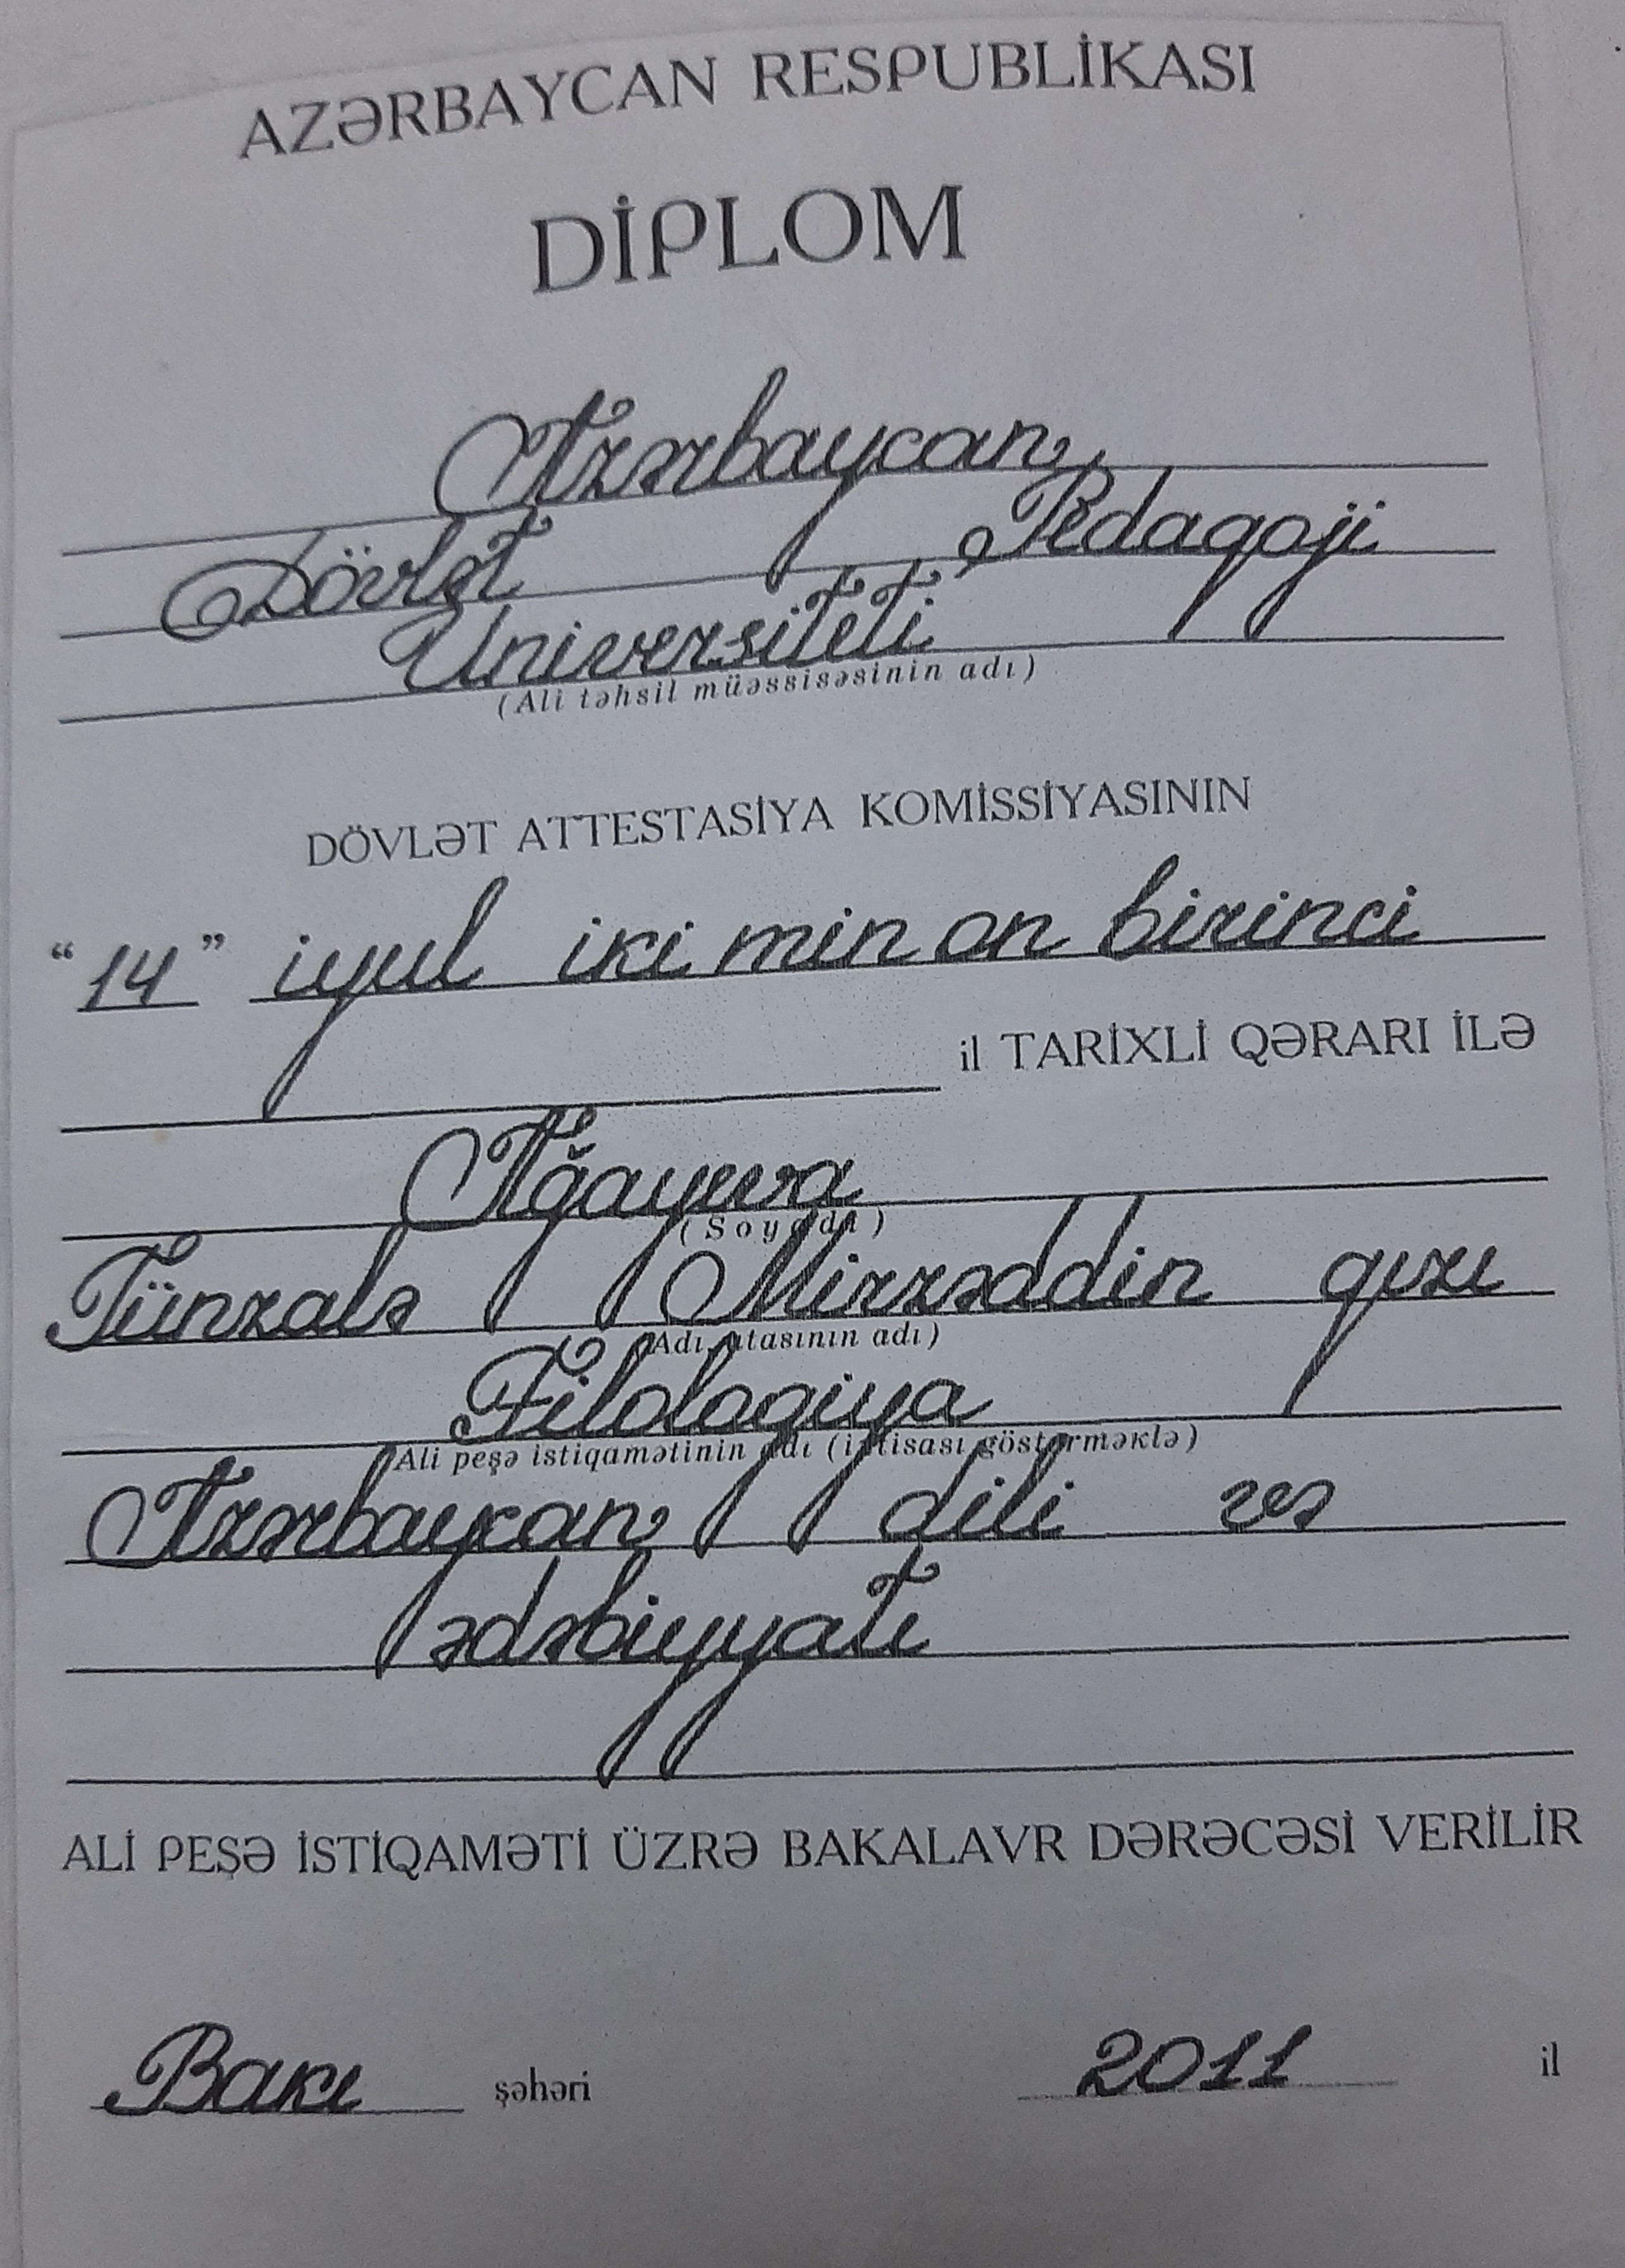 AZƏRBAYCAN RESPUBLİKASI
DİPLOM
Azərbaycan
Dövlət Pedaqoji
Universiteti
(Ali təhsil müəssisəsinin adı)
DÖVLƏT ATTESTASİYA KOMİSSİYASININ
“14” iyul iki min on birinci
il TARİXLİ QƏRARI İLƏ
Ağayeva
(Soyadı)
Tünzalə Mirzəddin qızı
(Adı, atasının adı)
Filologiya
(Ali peşə istiqamətinin adı (ixtisası göstərməklə)
Azərbaycan dili və
ədəbiyyatı
ALİ PEŞƏ İSTİQAMƏTİ ÜZRƏ BAKALAVR DƏRƏCƏSİ VERİLİR
Bakı şəhəri 2011 il